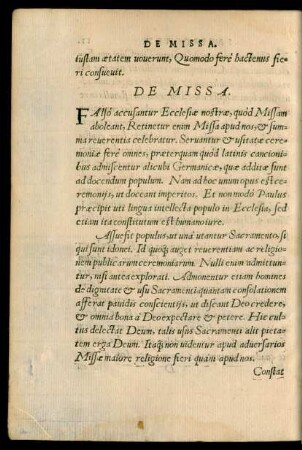 DE MISSA.
iustam ætatem uouerunt, Quomodo ferè hactenus fie-
ri consueuit.
DE MISSA.
FAlsò accusantur Ecclesiæ nostræ, quòd Missam
aboleant, Retinetur enim Missa apud nos, & sum
ma reuerentia celebratur. Seruantur & usitatæ cere-
moniæ ferè omnes, præterquam quòd latinis cancioni-
bus admiscentur alicubi Germanicæ, quæ additæ sunt
ad docendum populum. Nam ad hoc unum opus est ce-
remonijs, ut doceant imperitos, Et non modò Paulus
præcipit uti lingua intellecta populo in Ecclesia, sed
etiam ita constitutum est humano iure.
Assuefit populus, ut unà utantur Sacramento, si
qui sunt idonei. Id quoq; auget reuerentiam ac religio-
nem publicarum ceremoniarum. Nulli enim admittun-
tur, nisi antea explorati. Admonentur etiam homines
de dignitate & usu Sacramenti quantam consolationem
afferat pauidis conscientijs, ut discant Deo credere,
& omnia bona à Deo expectare & petere. Hic cul-
tus delectat Deum, talis usus Sacramenti alit pieta-
tem erga Deum. Itaq; non uidentur apud aduersarios
Missæ maiore religione fieri quàm apud nos.
Constat